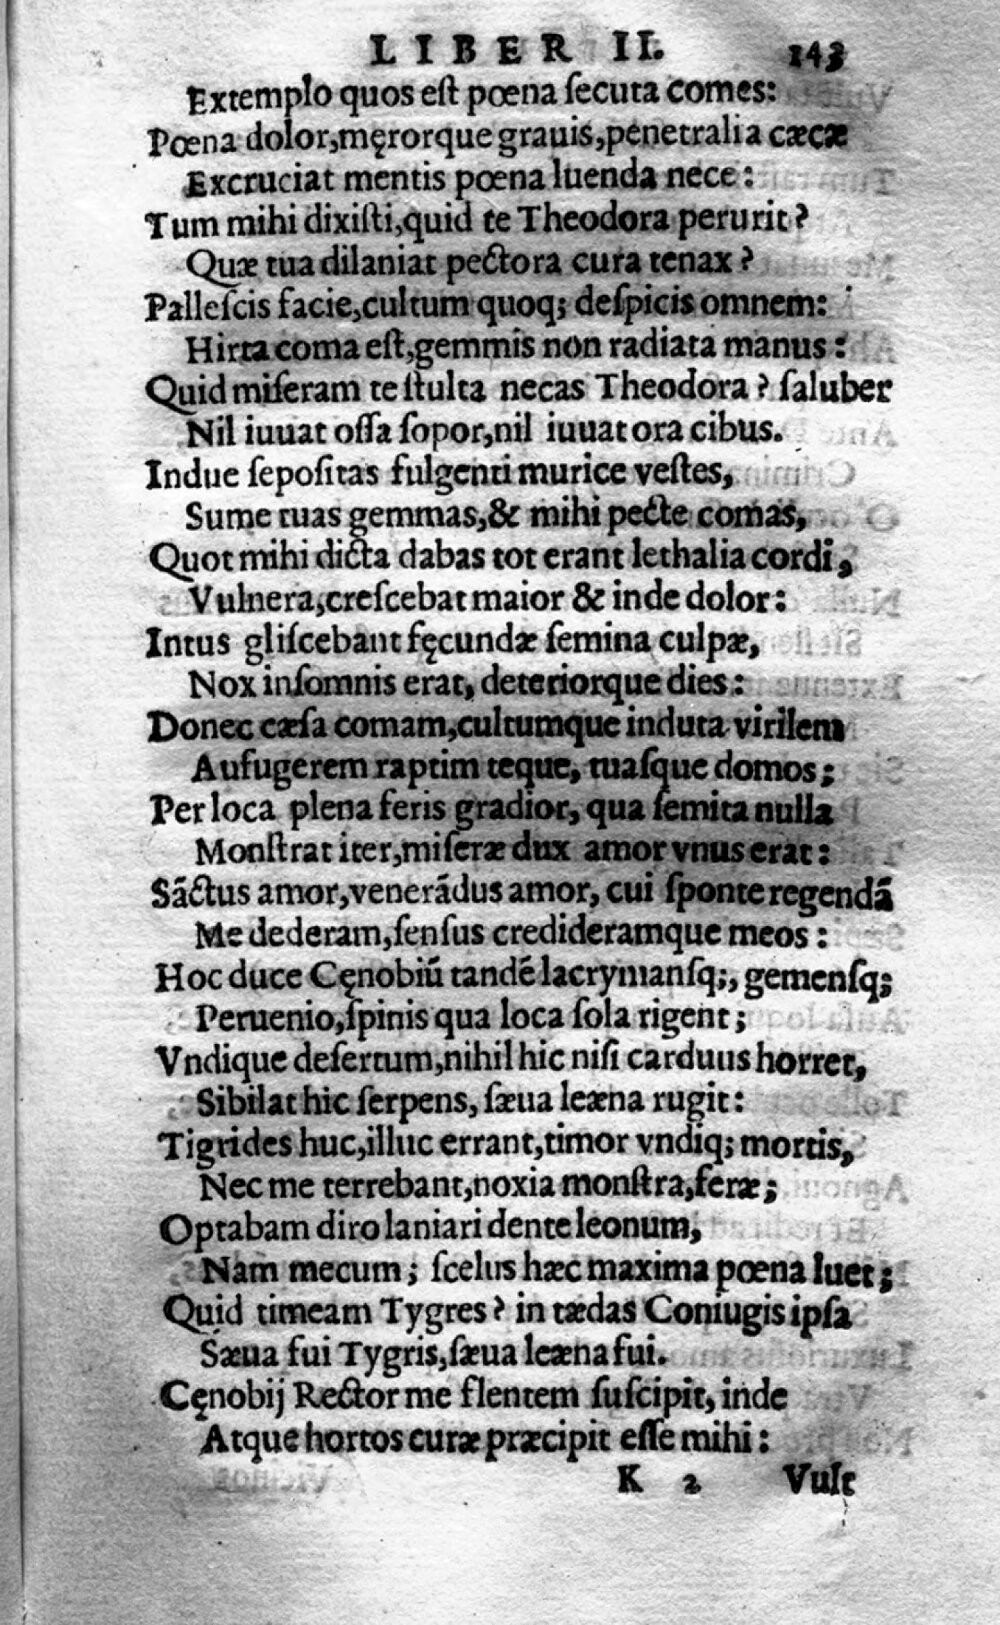 LIBER II. 143
Extemplo quos eſt pœna ſecuta comes:
Pœna dolor,męrorque grauis,penetralia cæcæ
Excruciat mentis pœna luenda nece:
Tum mihi dixiſti,quid te Theodora perurit?
Quæ tua dilaniat pectora cura tenax?
Palleſcis facie,cultum quoq; deſpicis omnem:
Hirta coma eſt,gemmis non radiata manus:
Quid miſeram te ſtulta necas Theodora? ſaluber
Nil iuuat oſſa ſopor,nil iuuat ora cibus.
Indue ſepoſitas fulgenti murice veſtes,
Sume tuas gemmas,& mihi pecte comas,
Quot mihi dicta dabas tot erant lethalia cordi,
Vulnera,creſcebat maior & inde dolor:
Intus gliſcebant fęcundæ ſemina culpæ,
Nox inſomnis erat, deteriorque dies:
Donec cæſa comam,cultumque induta virilem
Aufugerem raptim teque, tuaſque domos;
Per loca plena feris gradior, qua ſemita nulla
Monſtrat iter,miſeræ dux amor vnus erat:
Sãctus amor,venerãdus amor, cui ſponte regendã
Me dederam,ſenſus credideramque meos:
Hoc duce Cęnobiũ tandẽ lacrymanſq;, gemenſq;
Peruenio,ſpinis qua loca ſola rigent;
Vndique deſertum,nihil hic niſi carduus horret,
Sibilat hic ſerpens, ſæua leæna rugit:
Tigrides huc,illuc errant,timor vndiq; mortis,
Nec me terrebant,noxia monſtra,feræ;
Optabam diro laniari dente leonum,
Nam mecum; ſcelus hæc maxima pœna luet;
Quid timeam Tygres? in tædas Coniugis ipſa
Sæua fui Tygris,ſæua leæna fui.
Cęnobij Rector me flentem ſuſcipit, inde
Atque hortos curæ præcipit eſſe mihi:
K 2 Vult